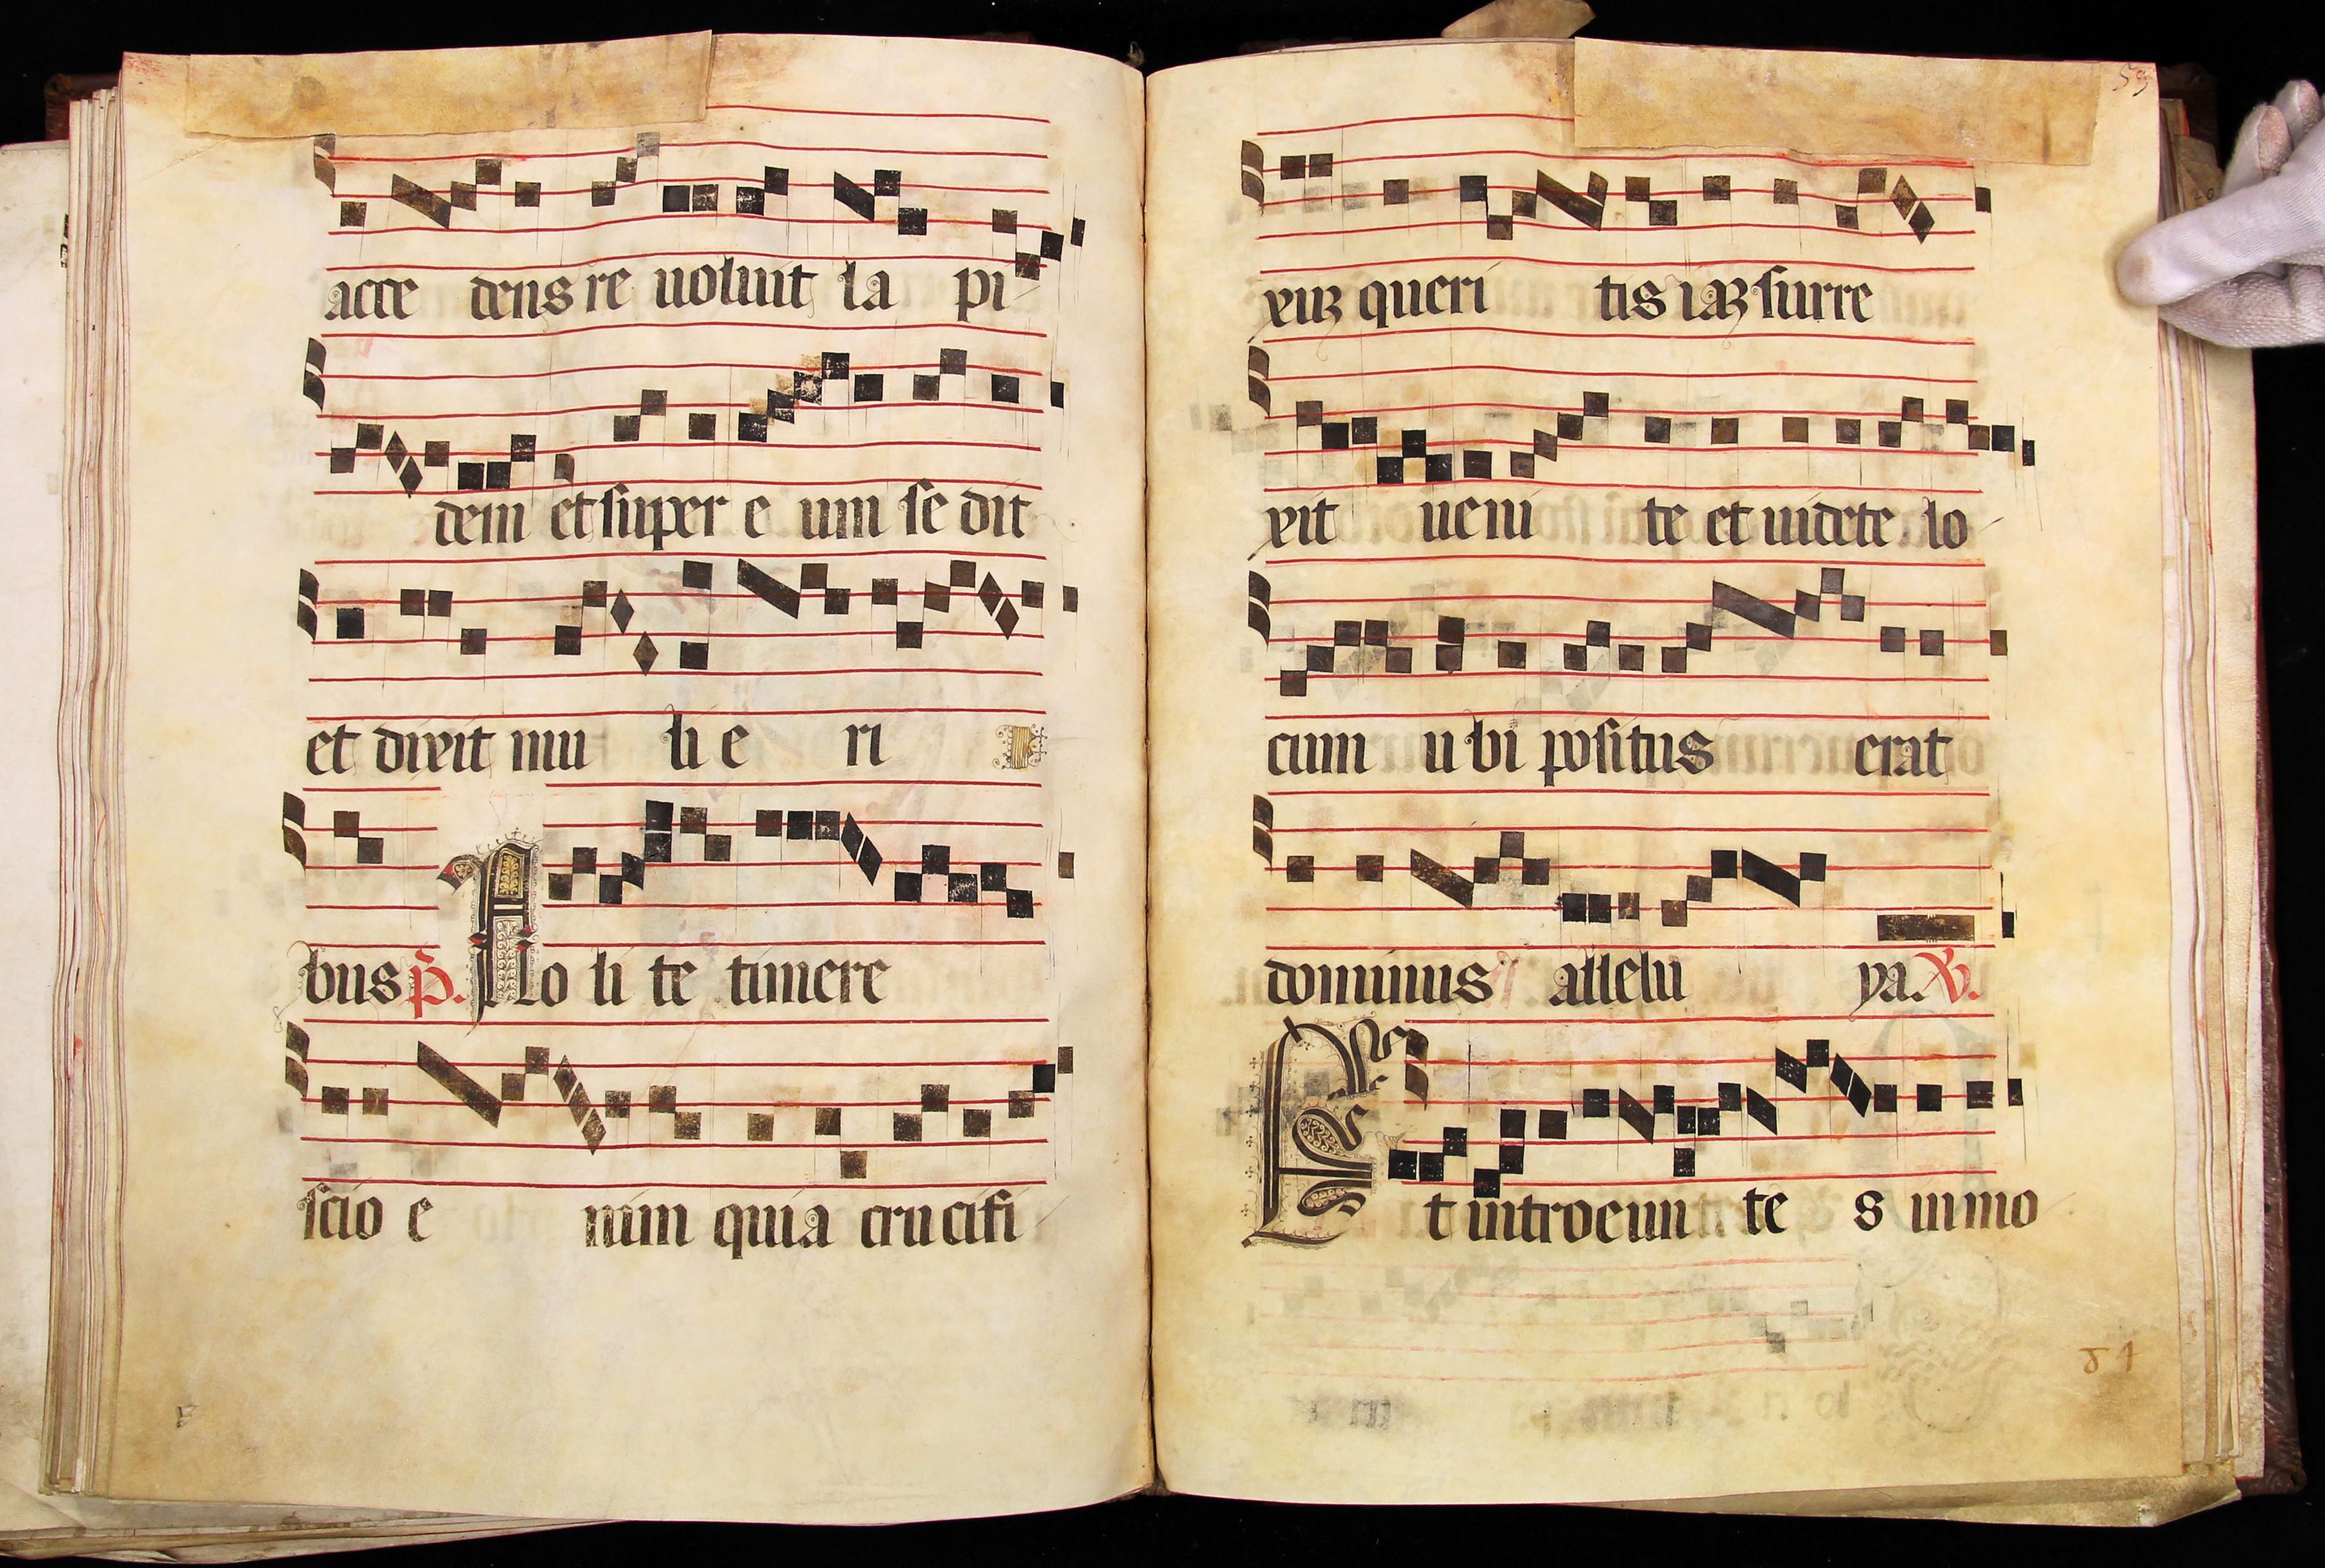 acce dens re uoluit la pi
dem et super e um se dit
et dixit mu li e ri
bus p̄. No li te timere
scio e nim quia cru cifi
59
xiꝫ queri tis iaꝫ surre
xit ueni te et uidete lo
cum u bi positus erat
dominus allelu ya. ℣.
Et introeun te s in mo